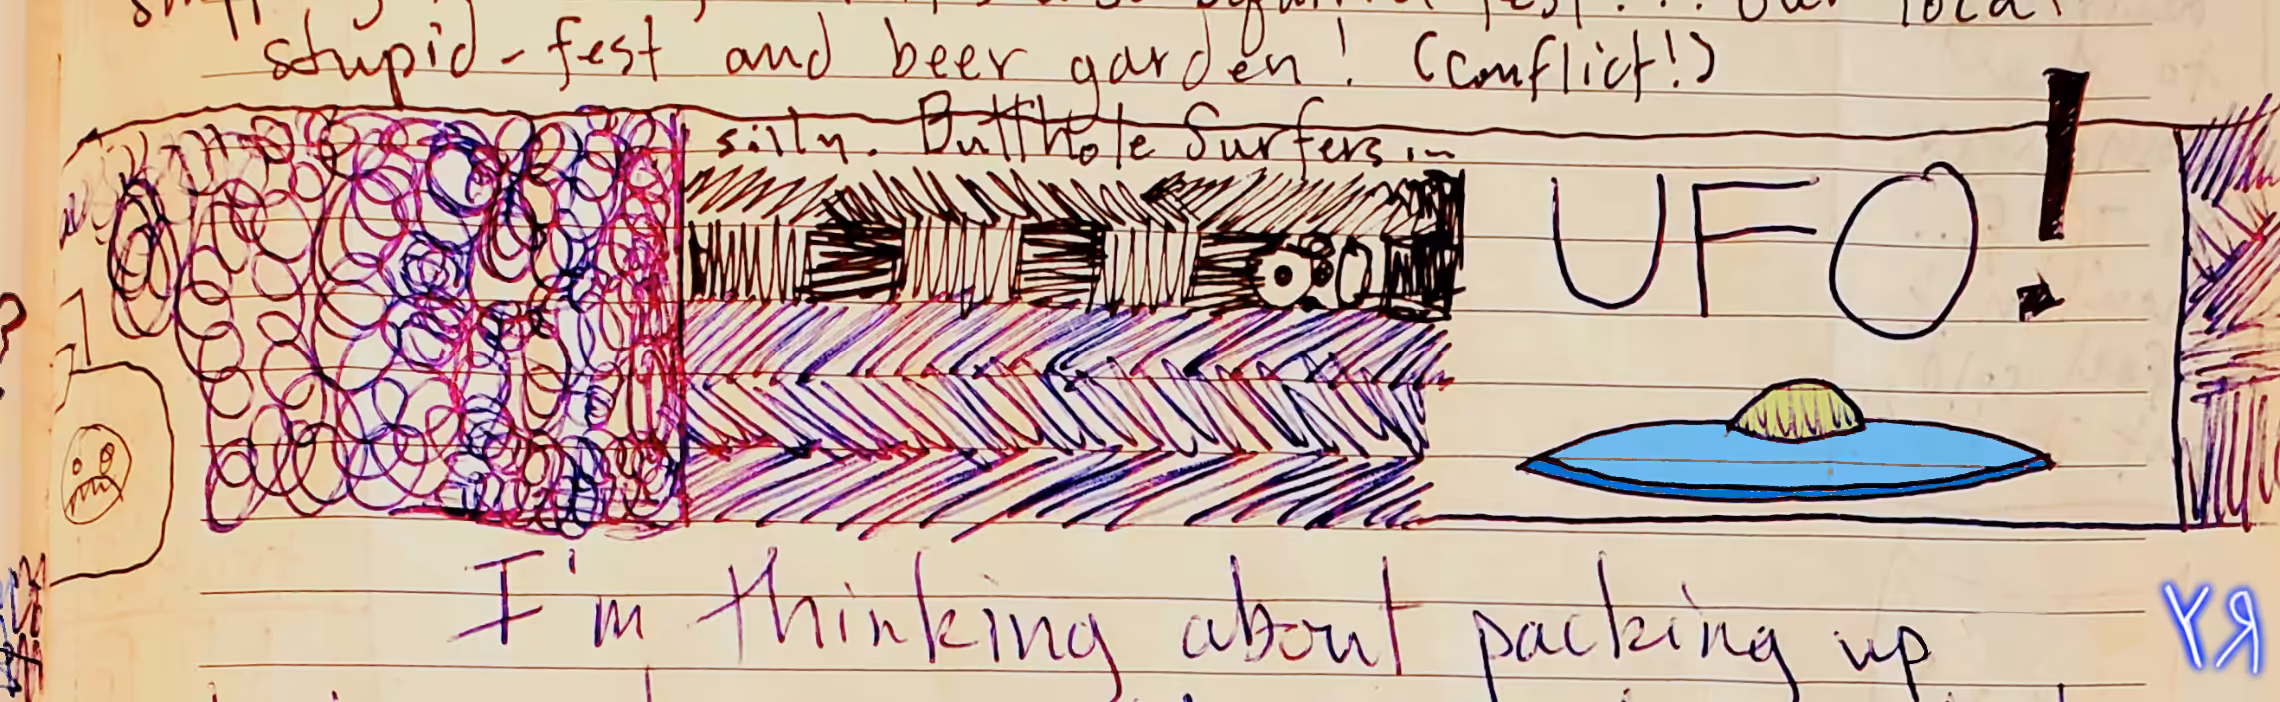 stupid-fest and beer garden! (conflict!)
silly. Butthole Surfers in
UFO!
I'm thinking about packing up